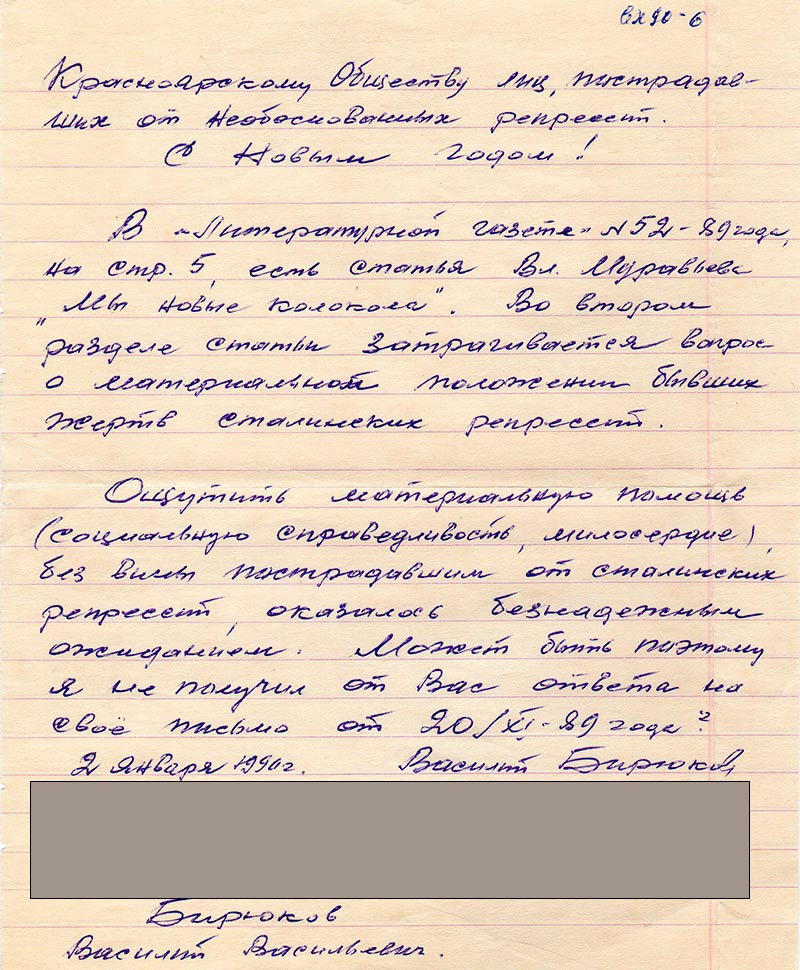 вх 90-6
Красноярскому Обществу лиц, пострадав-
ших от необоснованных репрессий.
С Новым годом!
В "Литературной газете" N 52-89 года,
на стр. 5, есть статья Вл. Муравьева
"Мы новые колокола". Во втором
разделе статьи затрагивается вопрос
о материальной положении бывших
жертв сталинских репрессий.
Ощутить материальную помощь
(социальную справедливость, милосердие),
без вины пострадавшим от сталинских
репрессий, оказалось безнадежным
ожиданием. Может быть поэтому
я не получил от Вас ответа на
своё письмо от 20/XI-89 года?
2 января 1990 г. Василий Бирюков
Бирюков
Василий Васильевич.